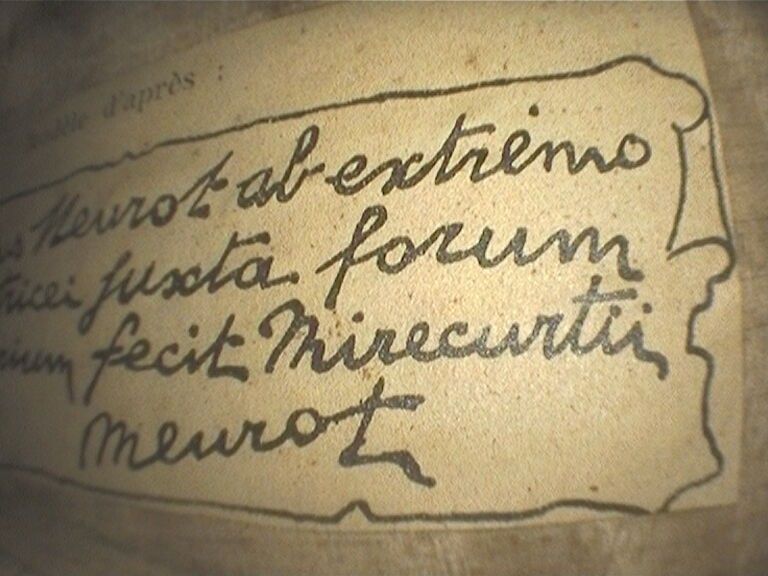 d'après :
Meurot ab extremo
juxta forum
fecit Mirecurtii
Meurot